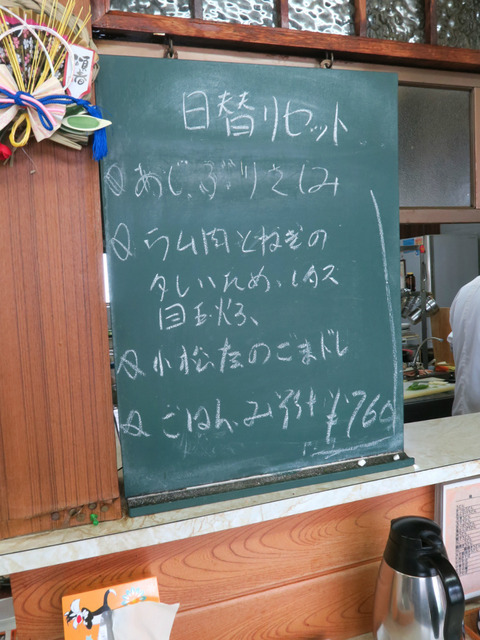 日替りセット
あじ、ぶりさしみ
ラム肉とねぎの
タレいため、レタス
目玉焼、
小松左のごまドレ
ごはん、みそ汁 ¥760